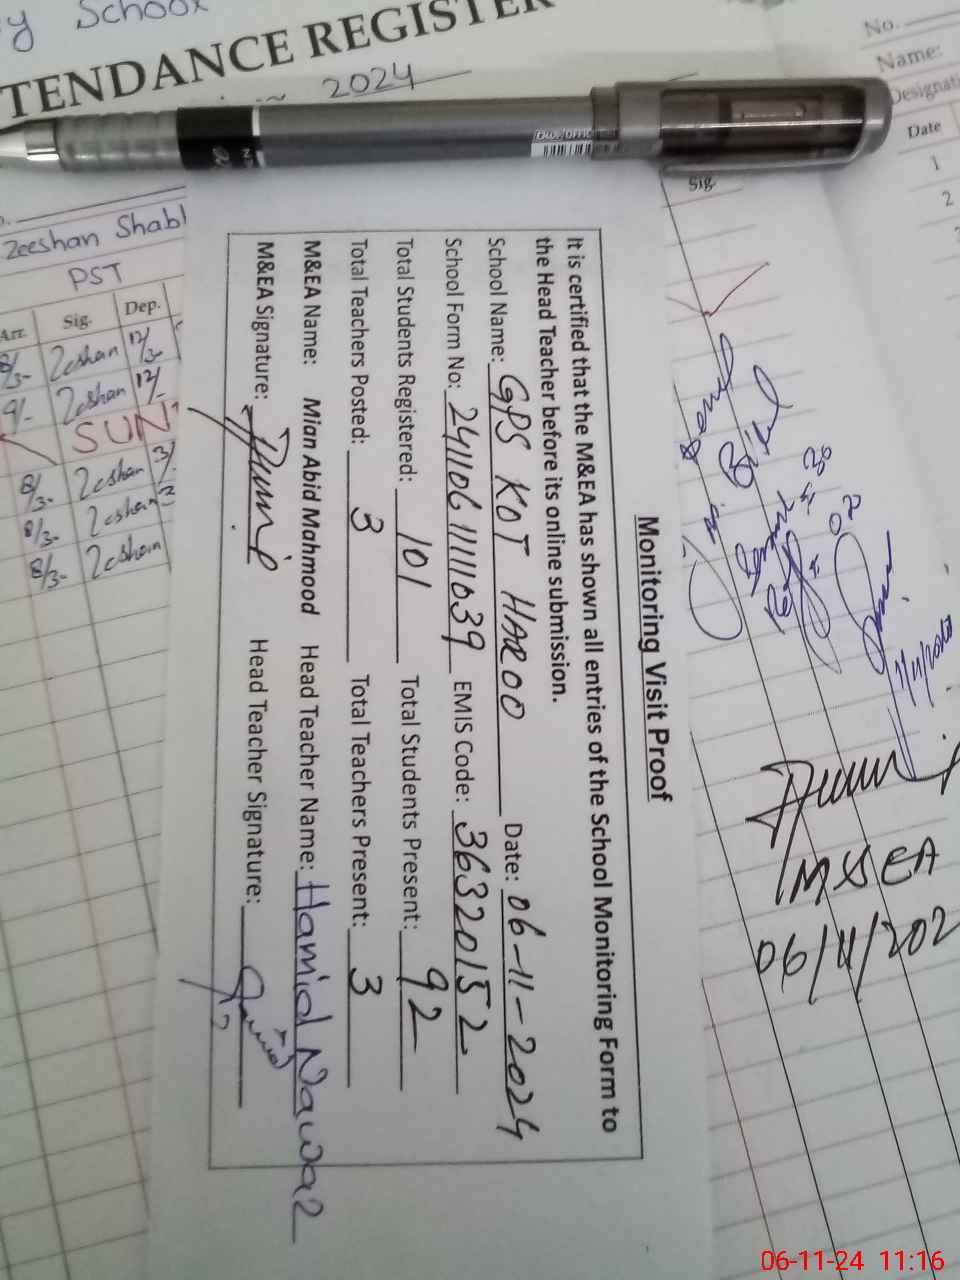 y School
TENDANCE REGISTER
2024
No.
Name:
Designati
Date
1
2
Sig.
Zeeshan Shabl
PST
Arr. Sig. Dep.
8/3- Zeshan 12/3-
9/- Zeshan 12/-
SUN
8/3- Zeshan
8/3- Zeshan
8/3- Zesham
Monitoring Visit Proof
It is certified that the M&EA has shown all entries of the School Monitoring Form to
the Head Teacher before its online submission.
School Name: GPS KOT HAROO Date: 06-11-2024
School Form No: 24110611111039 EMIS Code: 36320152
Total Students Registered: 101 Total Students Present: 92
Total Teachers Posted: 3 Total Teachers Present: 3
M&EA Name: Mian Abid Mahmood Head Teacher Name: Hamid Nawaz
M&EA Signature: Head Teacher Signature:
M&EA
06/11/202
06-11-24 11:16